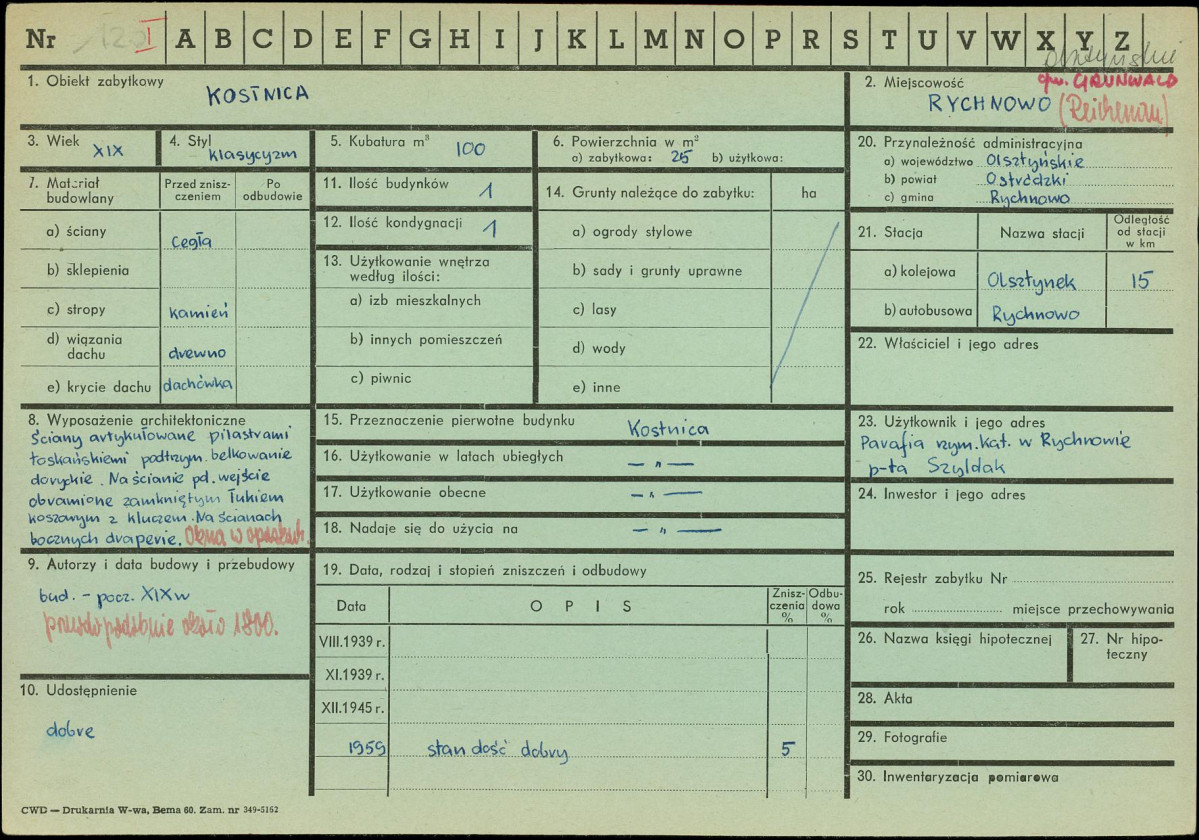 Nr I A B C D E F G H I J K L M N O P R S T U V W X Y Z
olsztyńskie
1. Obiekt zabytkowy
KOSTNICA
2. Miejscowość gm. GRUNWALD
RYCHNOWO (Reichenau)
3. Wiek
XIX
4. Styl
klasycyzm
5. Kubatura m³ 100
6. Powierzchnia w m²
a) zabytkowa: 25 b) użytkowa:
20. Przynależność administracyjna
a) województwo Olsztyńskie
b) powiat Ostródzki
c) gmina Rychnowo
7. Materiał budowlany
Przed zniszczeniem
Po odbudowie
a) ściany cegła
b) sklepienia
c) stropy kamień
d) wiązania dachu drewno
e) krycie dachu dachówka
11. Ilość budynków 1
12. Ilość kondygnacji 1
13. Użytkowanie wnętrza
według ilości:
a) izb mieszkalnych
b) innych pomieszczeń
c) piwnic
14. Grunty należące do zabytku: ha
a) ogrody stylowe
b) sady i grunty uprawne
c) lasy
d) wody
e) inne
21. Stacja Nazwa stacji
Odległość
od stacji
w km
a) kolejowa Olsztynek 15
b) autobusowa Rychnowo
22. Właściciel i jego adres
8. Wyposażenie architektoniczne
Ściany artykułowane pilastrami
toskańskiemi podtrzym. belkowanie
doryckie. Na ścianie pd. wejście
obramione zamkniętym łukiem
koszowym z kluczem. Na ścianach
bocznych draperie. Okna w opaskach.
15. Przeznaczenie pierwotne budynku Kostnica
16. Użytkowanie w latach ubiegłych — " —
17. Użytkowanie obecne — " —
18. Nadaje się do użycia na — " —
23. Użytkownik i jego adres
Parafia rzym. kat. w Rychnowie
p-ta Szyldak
24. Inwestor i jego adres
9. Autorzy i data budowy i przebudowy
bud. - pocz. XIX w
prawdopodobnie około 1800.
10. Udostępnienie
dobre
19. Data, rodzaj i stopień zniszczeń i odbudowy
Data OPIS Zniszczenia % Odbudowa %
VIII.1939 r.
XI.1939 r.
XII.1945 r.
1959 stan dość dobry 5
25. Rejestr zabytku Nr
rok miejsce przechowywania
26. Nazwa księgi hipotecznej
27. Nr hipoteczny
28. Akta
29. Fotografie
30. Inwentaryzacja pomiarowa
CWD — Drukarnia W-wa, Bema 60. Zam. nr 349-5162